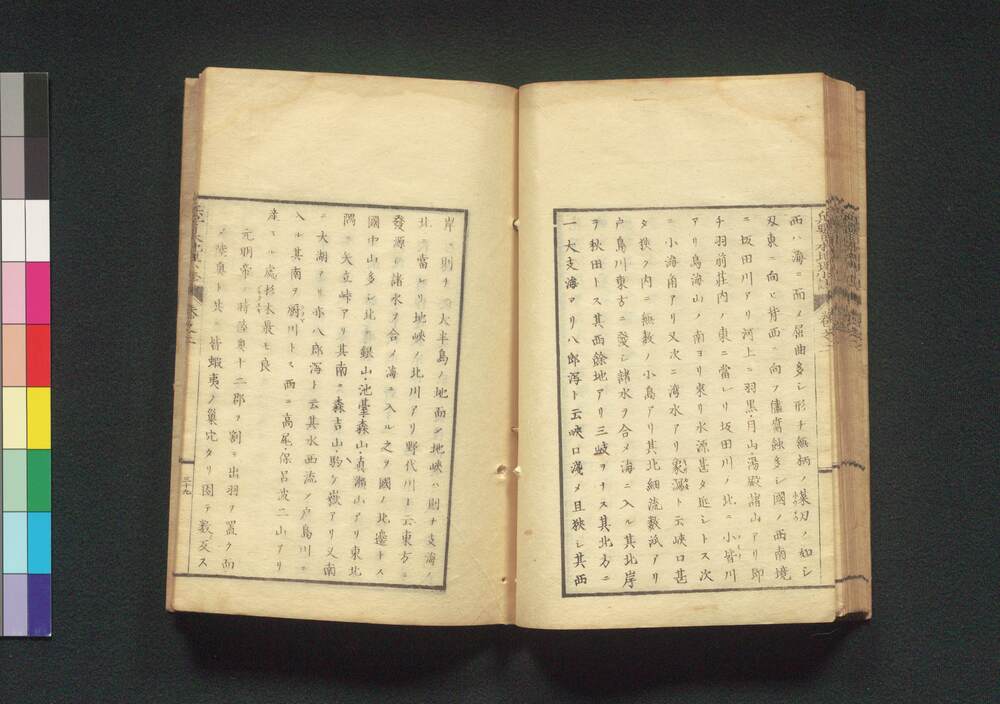 西ハ海ニ面メ屈曲多シ形チ無柄ノ菜刀ノ如シ
刄東ニ向ヒ背西ニ向フ儘腐蝕多シ國ノ西南境
ニ坂田川アリ河上ニ羽黒・月山・湯殿諸山アリ即
チ羽前莊内ノ東ニ當レリ坂田川ノ北ニ小皆川
アリ鳥海山ノ南ヨリ來リ水源甚タ近シトス次
ニ小海角アリ又次ニ湾水アリ象瀉ト云峽口甚
タ狹ク内ニ無數ノ小島アリ其北細流數派アリ
戸島川東方ニ發シ諸水ヲ合メ海ニ入ル其北岸
ヲ秋田トス其西餘地アリ三岐ヲナス其北方ニ
一大支海アリ八郎瀉ト云峽口淺メ且狹シ其西
岸ハ則チ一大半島ノ地面ニ地峽ハ則チ支海ノ
北ニ當レリ地峽ノ北川アリ野代川ト云東方ニ
發源シ諸水ヲ合メ海ニ入ル之ヲ國ノ北邊トス
國中山多シ北ニ銀山・池臺森山・眞瀬山アリ東北
隅ニ大立峠アリ其南ニ森吉山・駒ケ嶽アリ又南
ニ大湖アリ亦八郎瀉ト云其水西流メ戸島川ニ
入ル其南ヲ桐川トス西ニ高尾・保呂波二山アリ
産スル處杉木最モ良
元明帝ノ時陸奥十二郡ヲ割キ出羽ヲ置ク而
メ陸奥ト共ニ皆蝦夷ノ巢穴タリ因テ數反ス
三十九